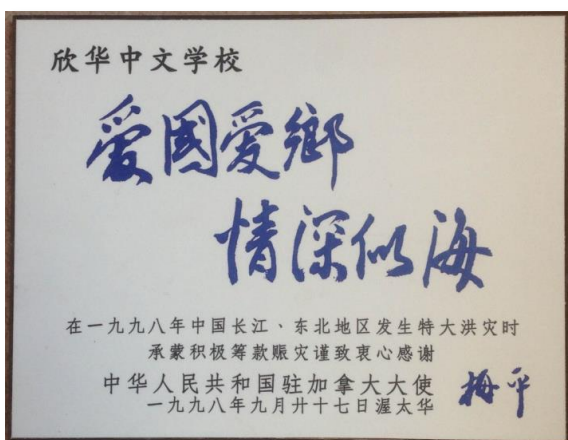 欣华中文学校
爱國爱鄉
情深似海
在一九九八年中国长江、东北地区发生特大洪灾时
承蒙积极筹款赈灾谨致衷心感谢
中华人民共和国驻加拿大大使 梅平
一九九八年九月廿十七日渥太华